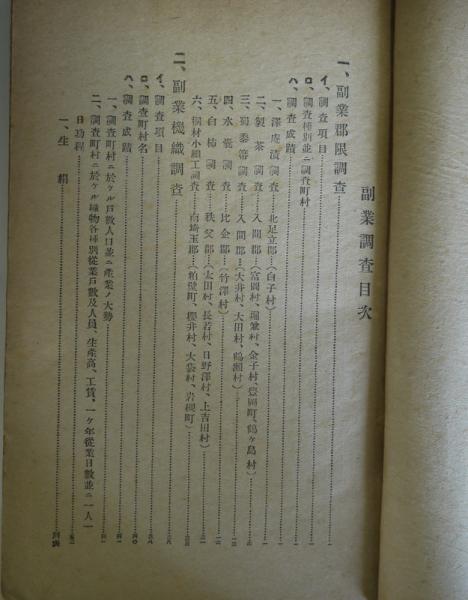 副業調査目次
一、副業郡限調査
イ、調査項目
ロ、調査種別並ニ調査町村
ハ、調査成蹟
一、澤庵漬調査 北足立郡（白子村）
二、製茶調査 入間郡（富岡村、堀兼村、金子村、豊岡町、鶴ヶ島村）
三、蜀黍箒調査 入間郡（大井村、大田村、鶴瀬村）
四、氷蒟調査 比企郡（竹澤村）
五、白柿調査 秩父郡（太田村、長若村、日野澤村、上吉田村）
六、桐材小細工調査 南埼玉郡（粕壁町、櫻井村、大袋村、岩槻町）
二、副業機織調査
イ、調査項目
ロ、調査町村名
ハ、調査成蹟
一、調査町村ニ於ケル戸数人口並ニ産業ノ大勢
二、調査町村ニ於ケル織物各種別從業戸數及人員、生産高、工賃、一ケ年從業日數並ニ一人一
日功程
一、生絹